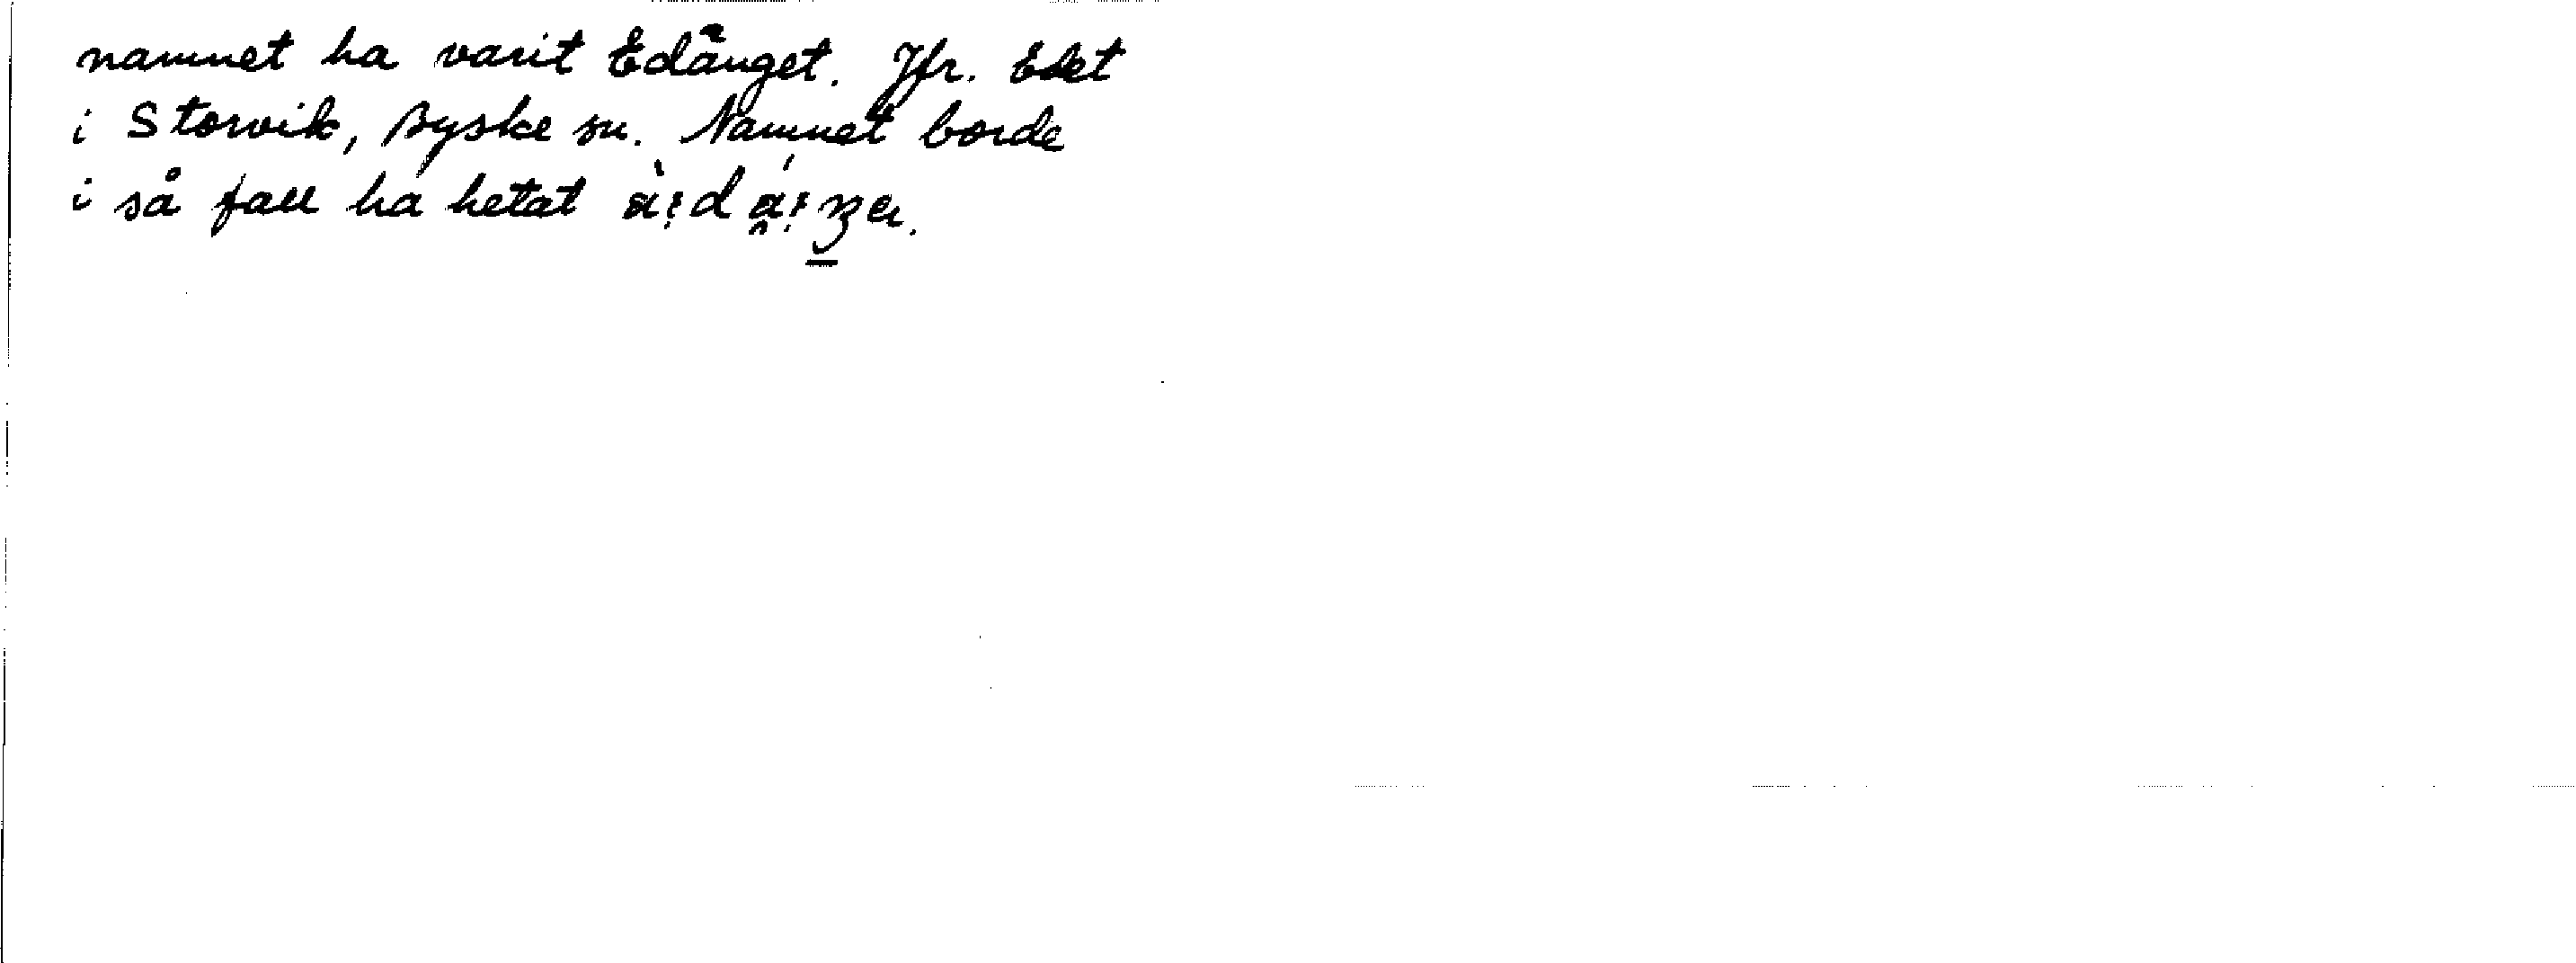 namnet ha varit Edänget. Jfr. Edet
i Storvik, Byske sn. Namnet borde
i så fall ha hetat